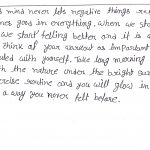 mind never lets negative things
goes in everything. When we st
we start felling better and it is a
Think of your workout as important
ded with yourself. Take long morning
the nature under the bright su
ercise routine and you will glow in
a way you never felt before.